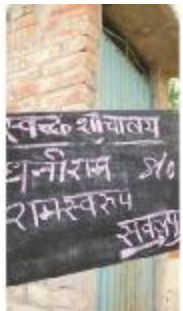 स्वच्छ शौचालय
धनीराम S/o
रामस्वरुप